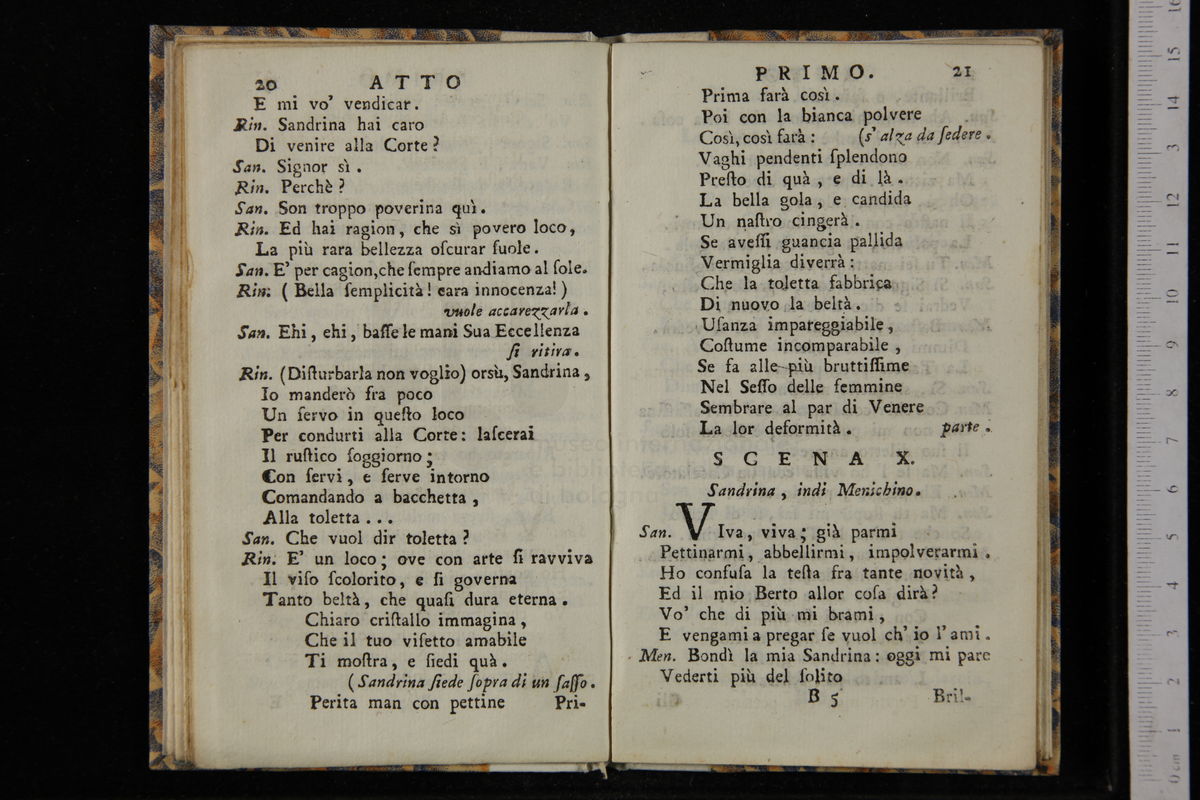 20 ATTO
E mi vo' vendicar.
Rin. Sandrina hai caro
Di venire alla Corte?
San. Signor sì.
Rin. Perchè?
San. Son troppo poverina quì.
Rin. Ed hai ragion, che sì povero loco,
La più rara bellezza oſcurar ſuole.
San. E' per cagion, che ſempre andiamo al ſole.
Rin. ( Bella ſemplicità! cara innocenza! )
vuole accarezzarla.
San. Ehi, ehi, baſſe le mani Sua Eccellenza
ſi ritira.
Rin. (Diſturbarla non voglio) orsù, Sandrina,
Io manderò fra poco
Un ſervo in queſto loco
Per condurti alla Corte: laſcerai
Il ruſtico ſoggiorno;
Con ſervi, e ſerve intorno
Comandando a bacchetta,
Alla toletta...
San. Che vuol dir toletta?
Rin. E' un loco; ove con arte ſi ravviva
Il viſo ſcolorito, e ſi governa
Tanto beltà, che quaſi dura eterna.
Chiaro criſtallo immagina,
Che il tuo viſetto amabile
Ti moſtra, e ſiedi quà.
(Sandrina ſiede ſopra di un ſaſſo.
Perita man con pettine Pri-
PRIMO. 21
Prima farà così.
Poi con la bianca polvere
Così, così farà: (s' alza da ſedere.
Vaghi pendenti ſplendono
Preſto di quà, e di là.
La bella gola, e candida
Un naſtro cingerà.
Se aveſſi guancia pallida
Vermiglia diverrà:
Che la toletta fabbrica
Di nuovo la beltà.
Uſanza impareggiabile,
Coſtume incomparabile,
Se fa alle più bruttiſſime
Nel Seſſo delle femmine
Sembrare al par di Venere
La lor deformità. parte.
SCENA X.
Sandrina, indi Menichino.
San. VIva, viva; già parmi
Pettinarmi, abbellirmi, impolverarmi.
Ho confuſa la teſta fra tante novità,
Ed il mio Berto allor coſa dirà?
Vo' che di più mi brami,
E vengami a pregar ſe vuol ch' io l'ami.
Men. Bondì la mia Sandrina: oggi mi pare
Vederti più del ſolito
B 5 Bril-